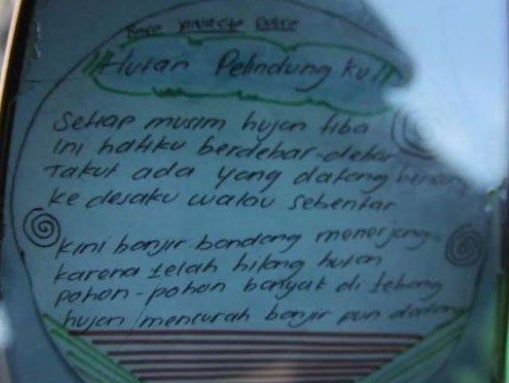 Hutan Pelindung ku
Setiap musim hujan tiba
Ini hatiku berdebar-debar
Takut ada yang datang
ke desaku walau sebentar
Kini banjir bandang menerjang
karena telah hilang hutan
pohon-pohon banyak di tebang
hujan mencurah banjir pun datang